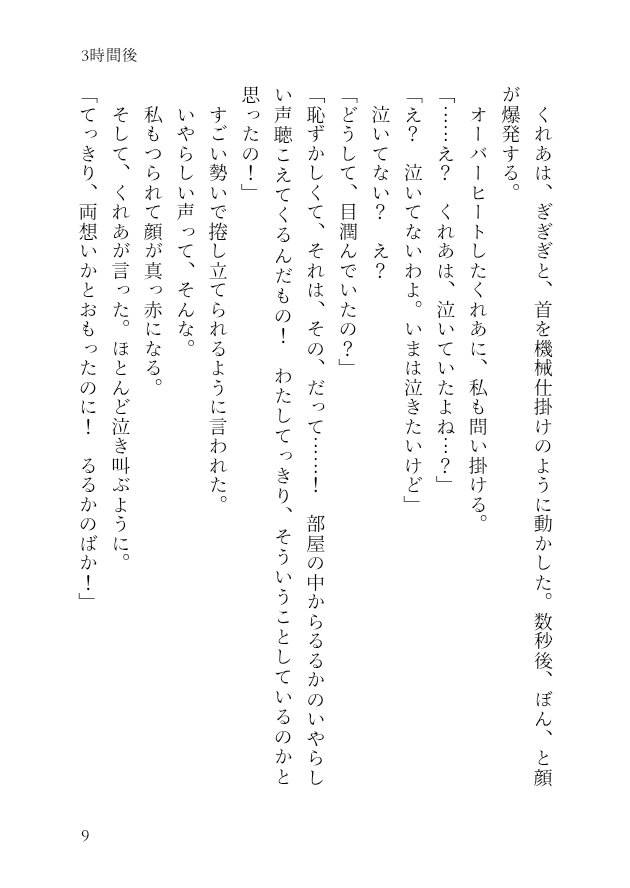 3時間後
　くれあは、ぎぎぎと、首を機械仕掛けのように動かした。数秒後、ぼん、と顔
が爆発する。
　オーバーヒートしたくれあに、私も問い掛ける。
「……え？　くれあは、泣いていたよね…？」
「え？　泣いてないわよ。いまは泣きたいけど」
　泣いてない？　え？
「どうして、目潤んでいたの？」
「恥ずかしくて、それは、その、だって……！　部屋の中からるるかのいやらし
い声聴こえてくるんだもの！　わたしてっきり、そういうことしているのかと
思ったの！」
　すごい勢いで捲し立てられるように言われた。
　いやらしい声って、そんな。
　私もつられて顔が真っ赤になる。
　そして、くれあが言った。ほとんど泣き叫ぶように。
「てっきり、両想いかとおもったのに！　るるかのばか！」
9